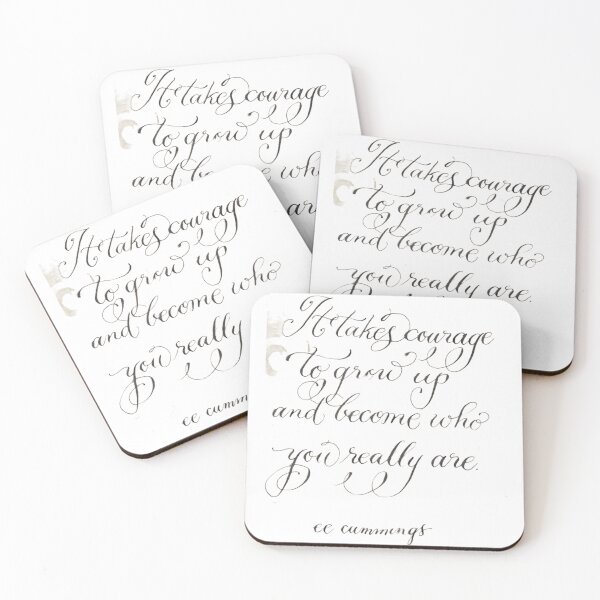 It takes courage
to grow up
and become who
ar
It takes courage
to grow up
and become who
you really are.
It takes courage
to grow up
and become who
you really
cc cummings
It takes courage
to grow up
and become who
you really are.
cc cummings